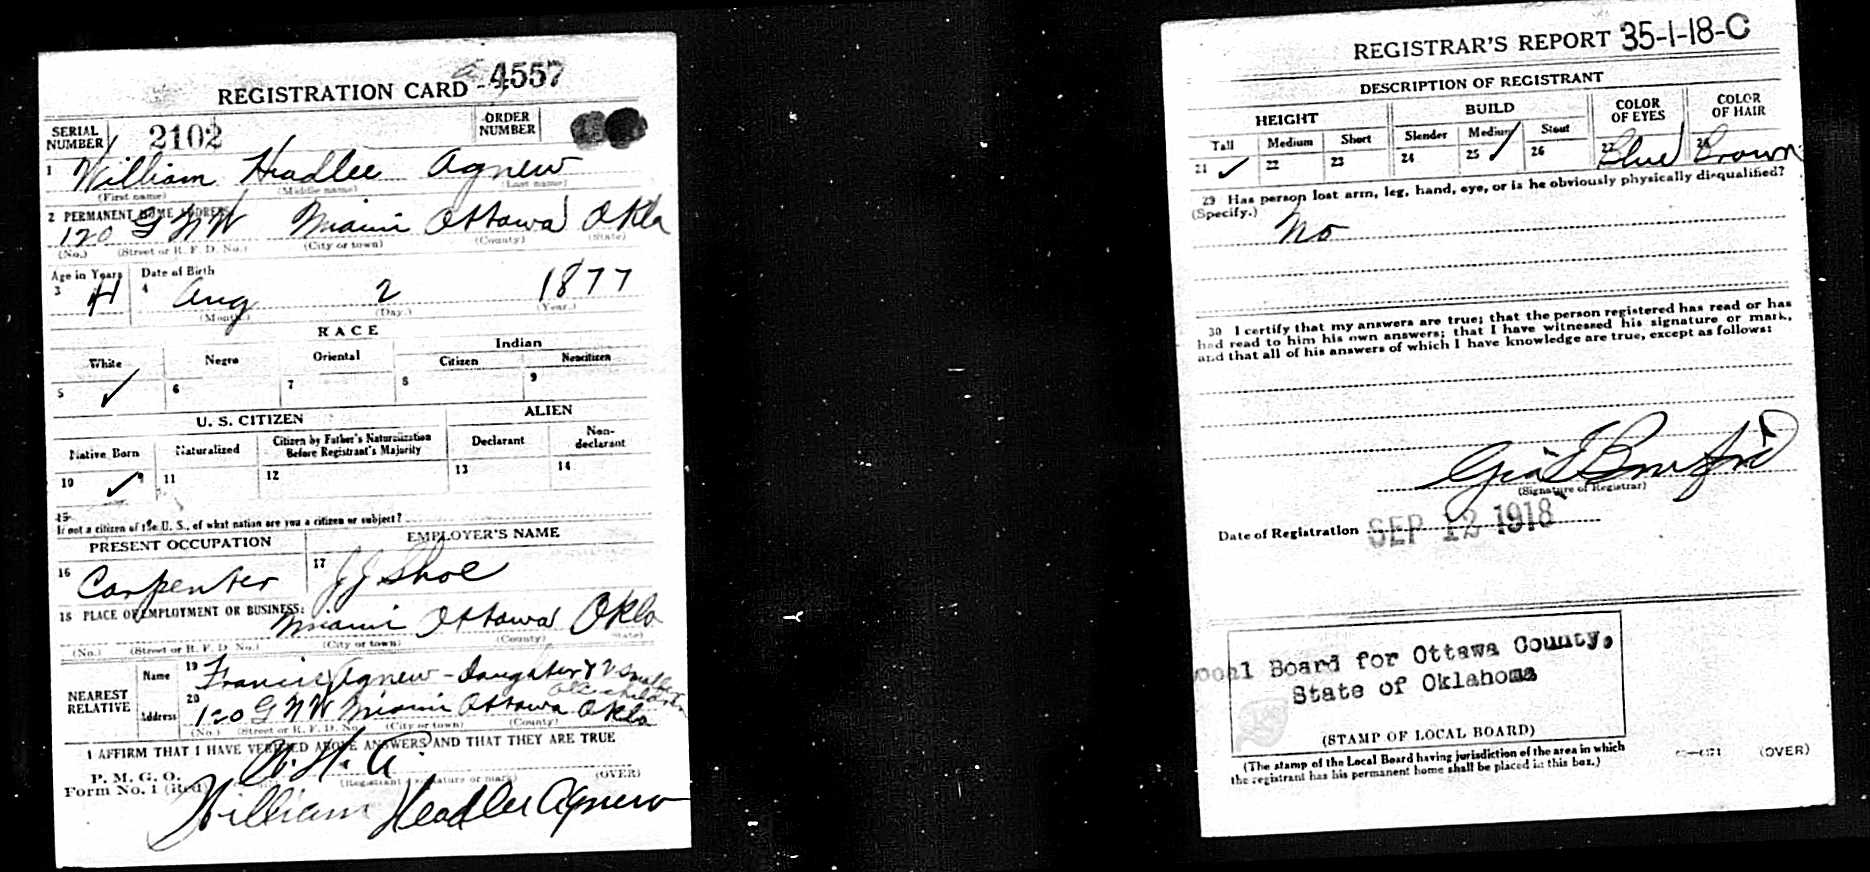 REGISTRATION CARD - 4557
SERIAL NUMBER 2102 ORDER NUMBER
1 William Headlee Agnew
(First name) (Middle name) (Last name)
2 PERMANENT HOME ADDRESS
120 G N W Miami Ottawa Okla
(No.) (Street or R. F. D. No.) (City or town) (County) (State)
Age in Years Date of Birth
3 41 4 Aug 2 1877
(Month.) (Day.) (Year.)
RACE
White Negro Oriental Indian
Citizen Noncitizen
5 ✓ 6 7 8 9
U. S. CITIZEN ALIEN
Native Born Naturalized Citizen by Father's Naturalization Before Registrant's Majority Declarant Non-declarant
10 ✓ 11 12 13 14
15
If not a citizen of the U. S., of what nation are you a citizen or subject?
PRESENT OCCUPATION EMPLOYER'S NAME
16 Carpenter 17 J J Shoe
18 PLACE OF EMPLOYMENT OR BUSINESS:
Miami Ottawa Okla
(No.) (Street or R. F. D. No.) (City or town) (County) (State)
NEAREST RELATIVE Name 19 Francis Agnew - Daughter & 2 smaller children
Address 20 120 G N W Miami Ottawa Okla
(No.) (Street or R. F. D. No.) (City or town) (County)
I AFFIRM THAT I HAVE VERIFIED ABOVE ANSWERS AND THAT THEY ARE TRUE
P. M. G. O.
Form No. 1 (Red) W. H. A. (Registrant signature or mark) (OVER)
William Headlee Agnew
REGISTRAR'S REPORT 35-1-18-C
DESCRIPTION OF REGISTRANT
HEIGHT BUILD COLOR OF EYES COLOR OF HAIR
Tall Medium Short Slender Medium Stout
21 ✓ 22 23 24 25 ✓ 26 27 Blue 28 Brown
29 Has person lost arm, leg, hand, eye, or is he obviously physically disqualified?
(Specify.) No
30 I certify that my answers are true; that the person registered has read or has
had read to him his own answers; that I have witnessed his signature or mark,
and that all of his answers of which I have knowledge are true, except as follows:
(Signature of Registrar)
Date of Registration SEP 12 1918
Local Board for Ottawa County,
State of Oklahoma
(STAMP OF LOCAL BOARD)
(The stamp of the Local Board having jurisdiction of the area in which
the registrant has his permanent home shall be placed in this box.)
(OVER)